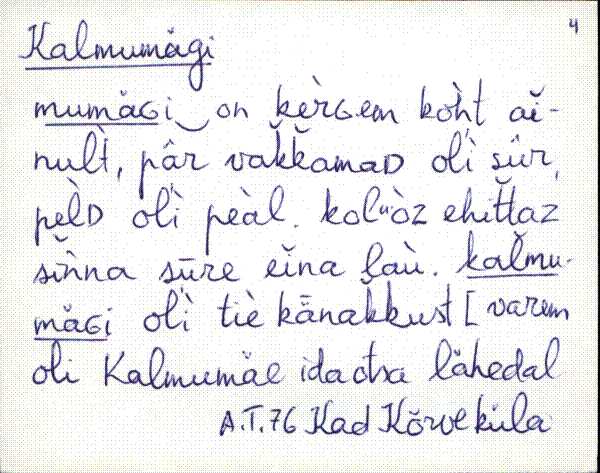 4
Kalmumägi
mumäɢi on kèrɢem koh̀t aĭ-
nul̀t, pâr vak̆k̆amaᴅ ol̀i sûr,
pèlᴅ ol̀i peàl. kolᵘòz ehit̆t̆az
siǹ̆na sūre eĭna l̦aù. kal̆mu-
mäɢi ol̀i tiè kānak̆kust [varem
oli Kalmumäe idaotsa lähedal
A.T. 76 Kad Kõrveküla